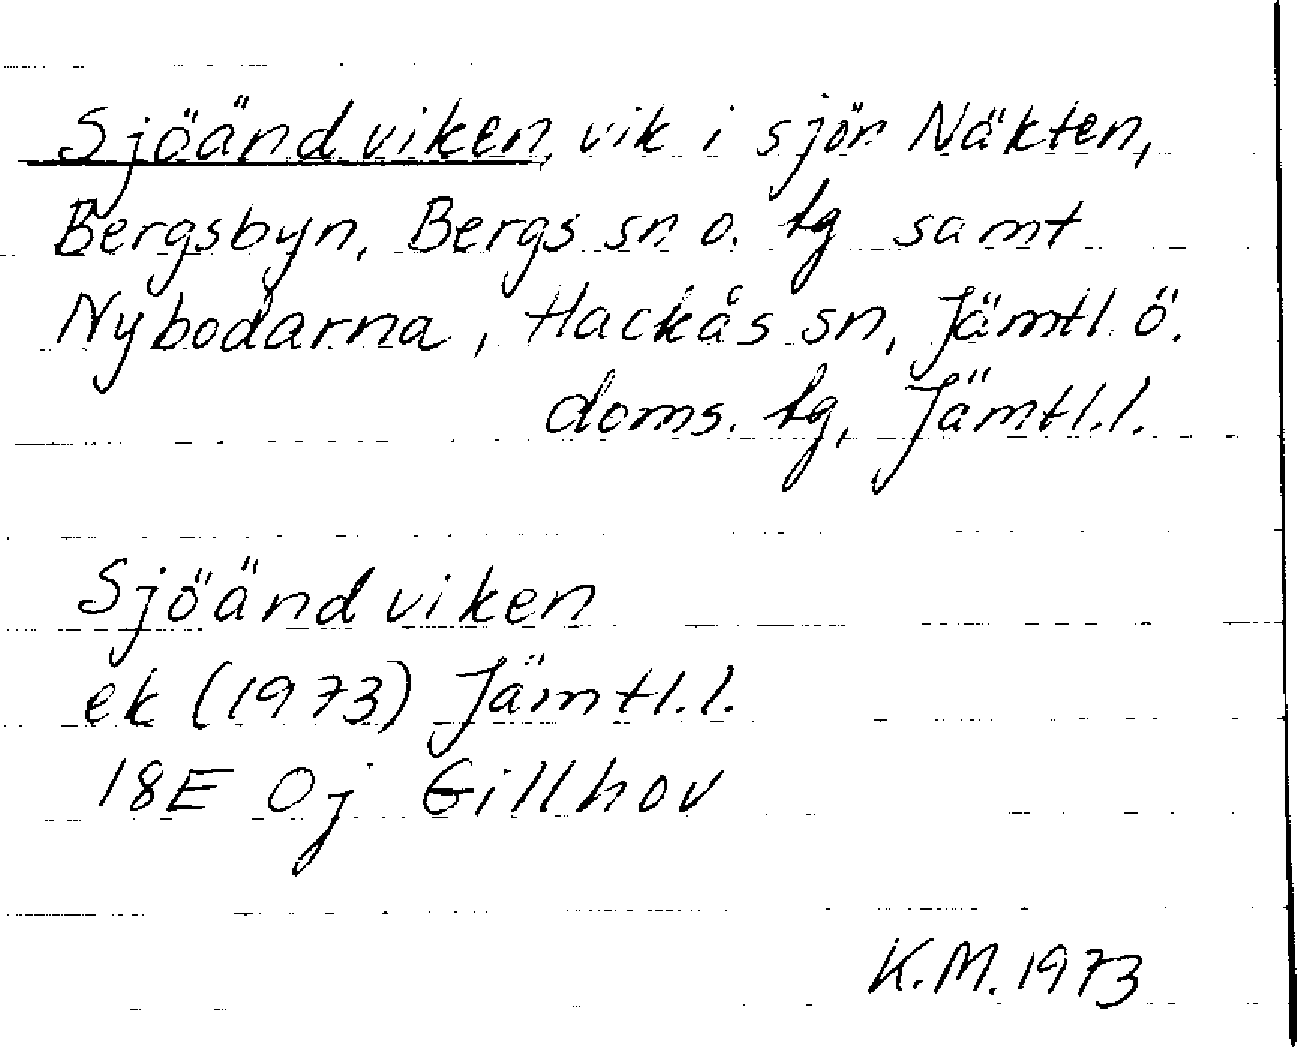 Sjöändviken, vik i sjön Näkten,
Bergsbyn, Bergs sn o. tg samt
Nybodarna, Hackås sn, Jämtl. ö.
doms. tg, Jämtl.l.
Sjöändviken
ek (1973) Jämtl.l.
18E 0j Gillhov
K.M. 1973